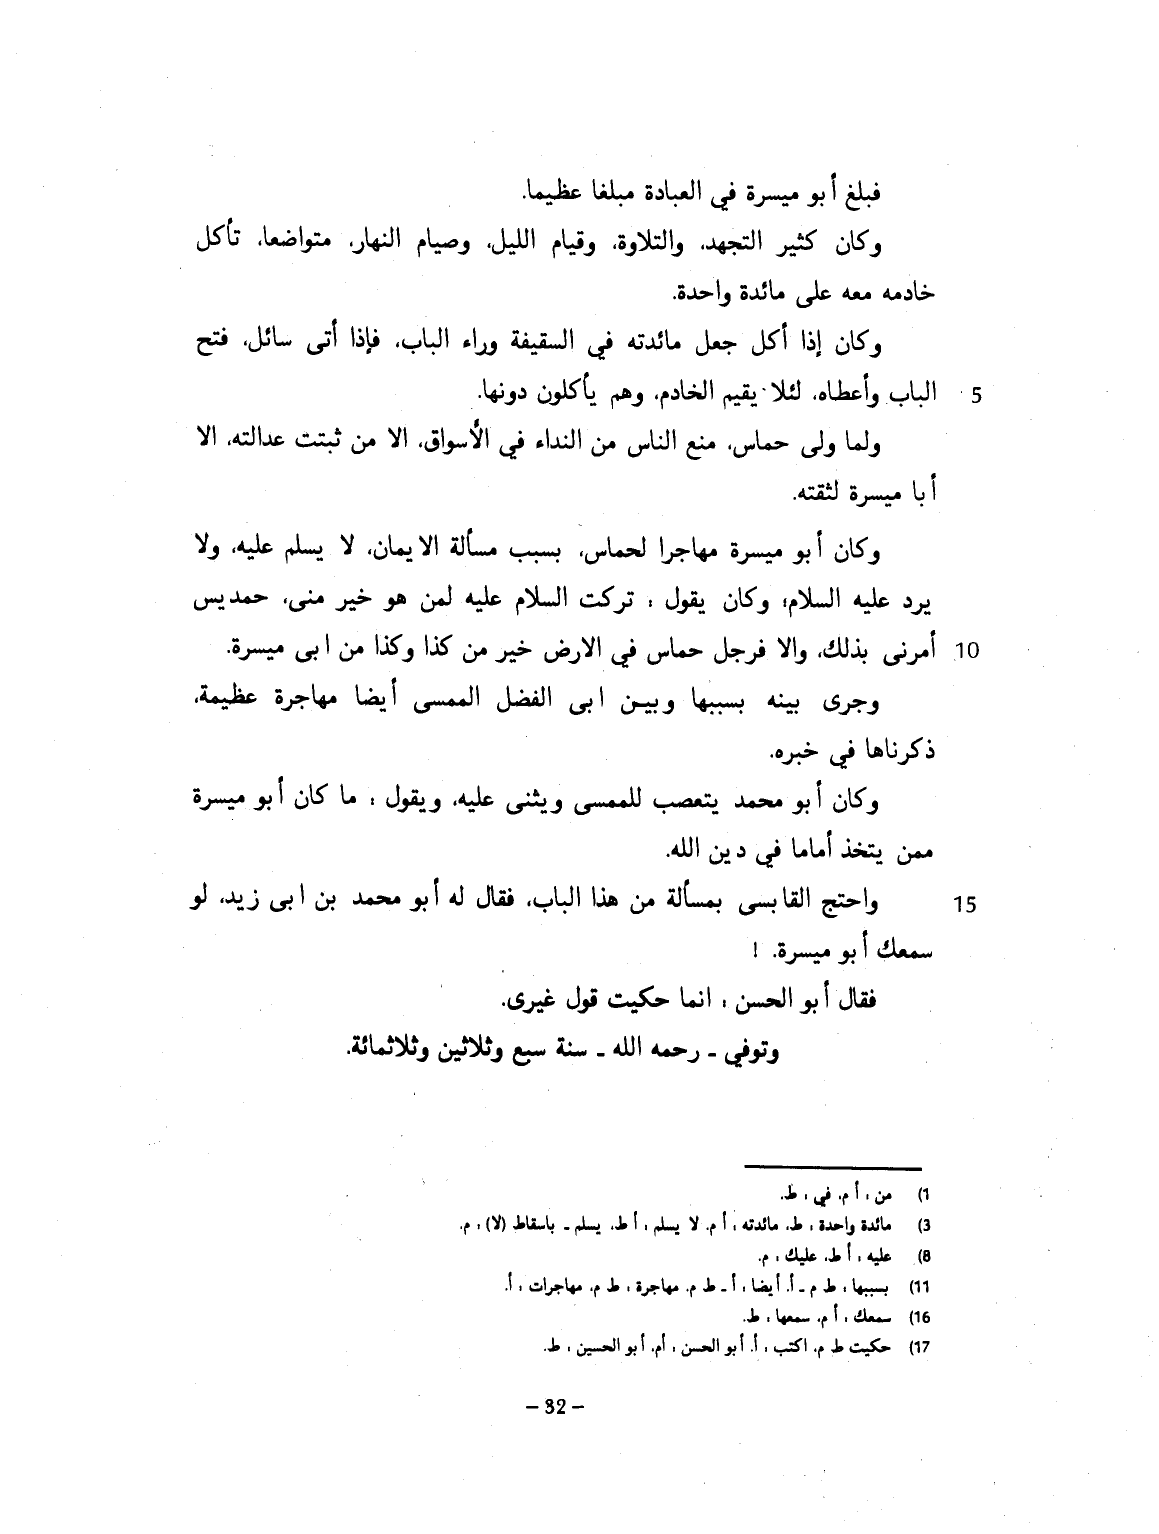 فبلغ أبو ميسرة في العبادة مبلغا عظيما.
وكان كثير التجهد، والتلاوة، وقيام الليل، وصيام النهار، متواضعا، تأكل
خادمه معه على مائدة واحدة.
وكان إذا أكل جعل مائدته في السقيفة وراء الباب، فإذا أتى سائل، فتح
5 الباب وأعطاه، لئلا يقيم الخادم، وهم يأكلون دونها.
ولما ولى حماس، منع الناس من النداء في الأسواق، الا من ثبتت عدالته، الا
أبا ميسرة لثقته.
وكان أبو ميسرة مهاجرا لحماس، بسبب مسألة الايمان، لا يسلم عليه، ولا
يرد عليه السلام؛ وكان يقول : تركت السلام عليه لمن هو خير منى، حمديس
10 أمرنى بذلك، والا فرجل حماس في الارض خير من كذا وكذا من ابى ميسرة.
وجرى بينه بسببها وبين ابى الفضل الممسى أيضا مهاجرة عظيمة،
ذكرناها في خبره.
وكان أبو محمد يتعصب للممسى ويثنى عليه، ويقول : ما كان أبو ميسرة
ممن يتخذ أماما في دين الله.
15 واحتج القابسى بمسألة من هذا الباب، فقال له أبو محمد بن ابى زيد، لو
سمعك أبو ميسرة. !
فقال أبو الحسن : انما حكيت قول غيرى.
وتوفي ـ رحمه الله ـ سنة سبع وثلاثين وثلاثمائة.
1) من : أ م. في : ط.
3) مائدة واحدة : ط، مائدته : أ م. لا يسلم : أ ط. يسلم ـ باسقاط (لا) : م.
8) عليه : أ ط، عليك : م.
11) بسببها : ط م ـ أ. أيضا : أ ـ ط م. مهاجرة : ط م. مهاجرات : أ.
16) سمعك : أ م، سمعها : ط.
17) حكيت ط م. اكتب : أ. أبو الحسن : أم. أبو الحسين : ط.
– 32 –